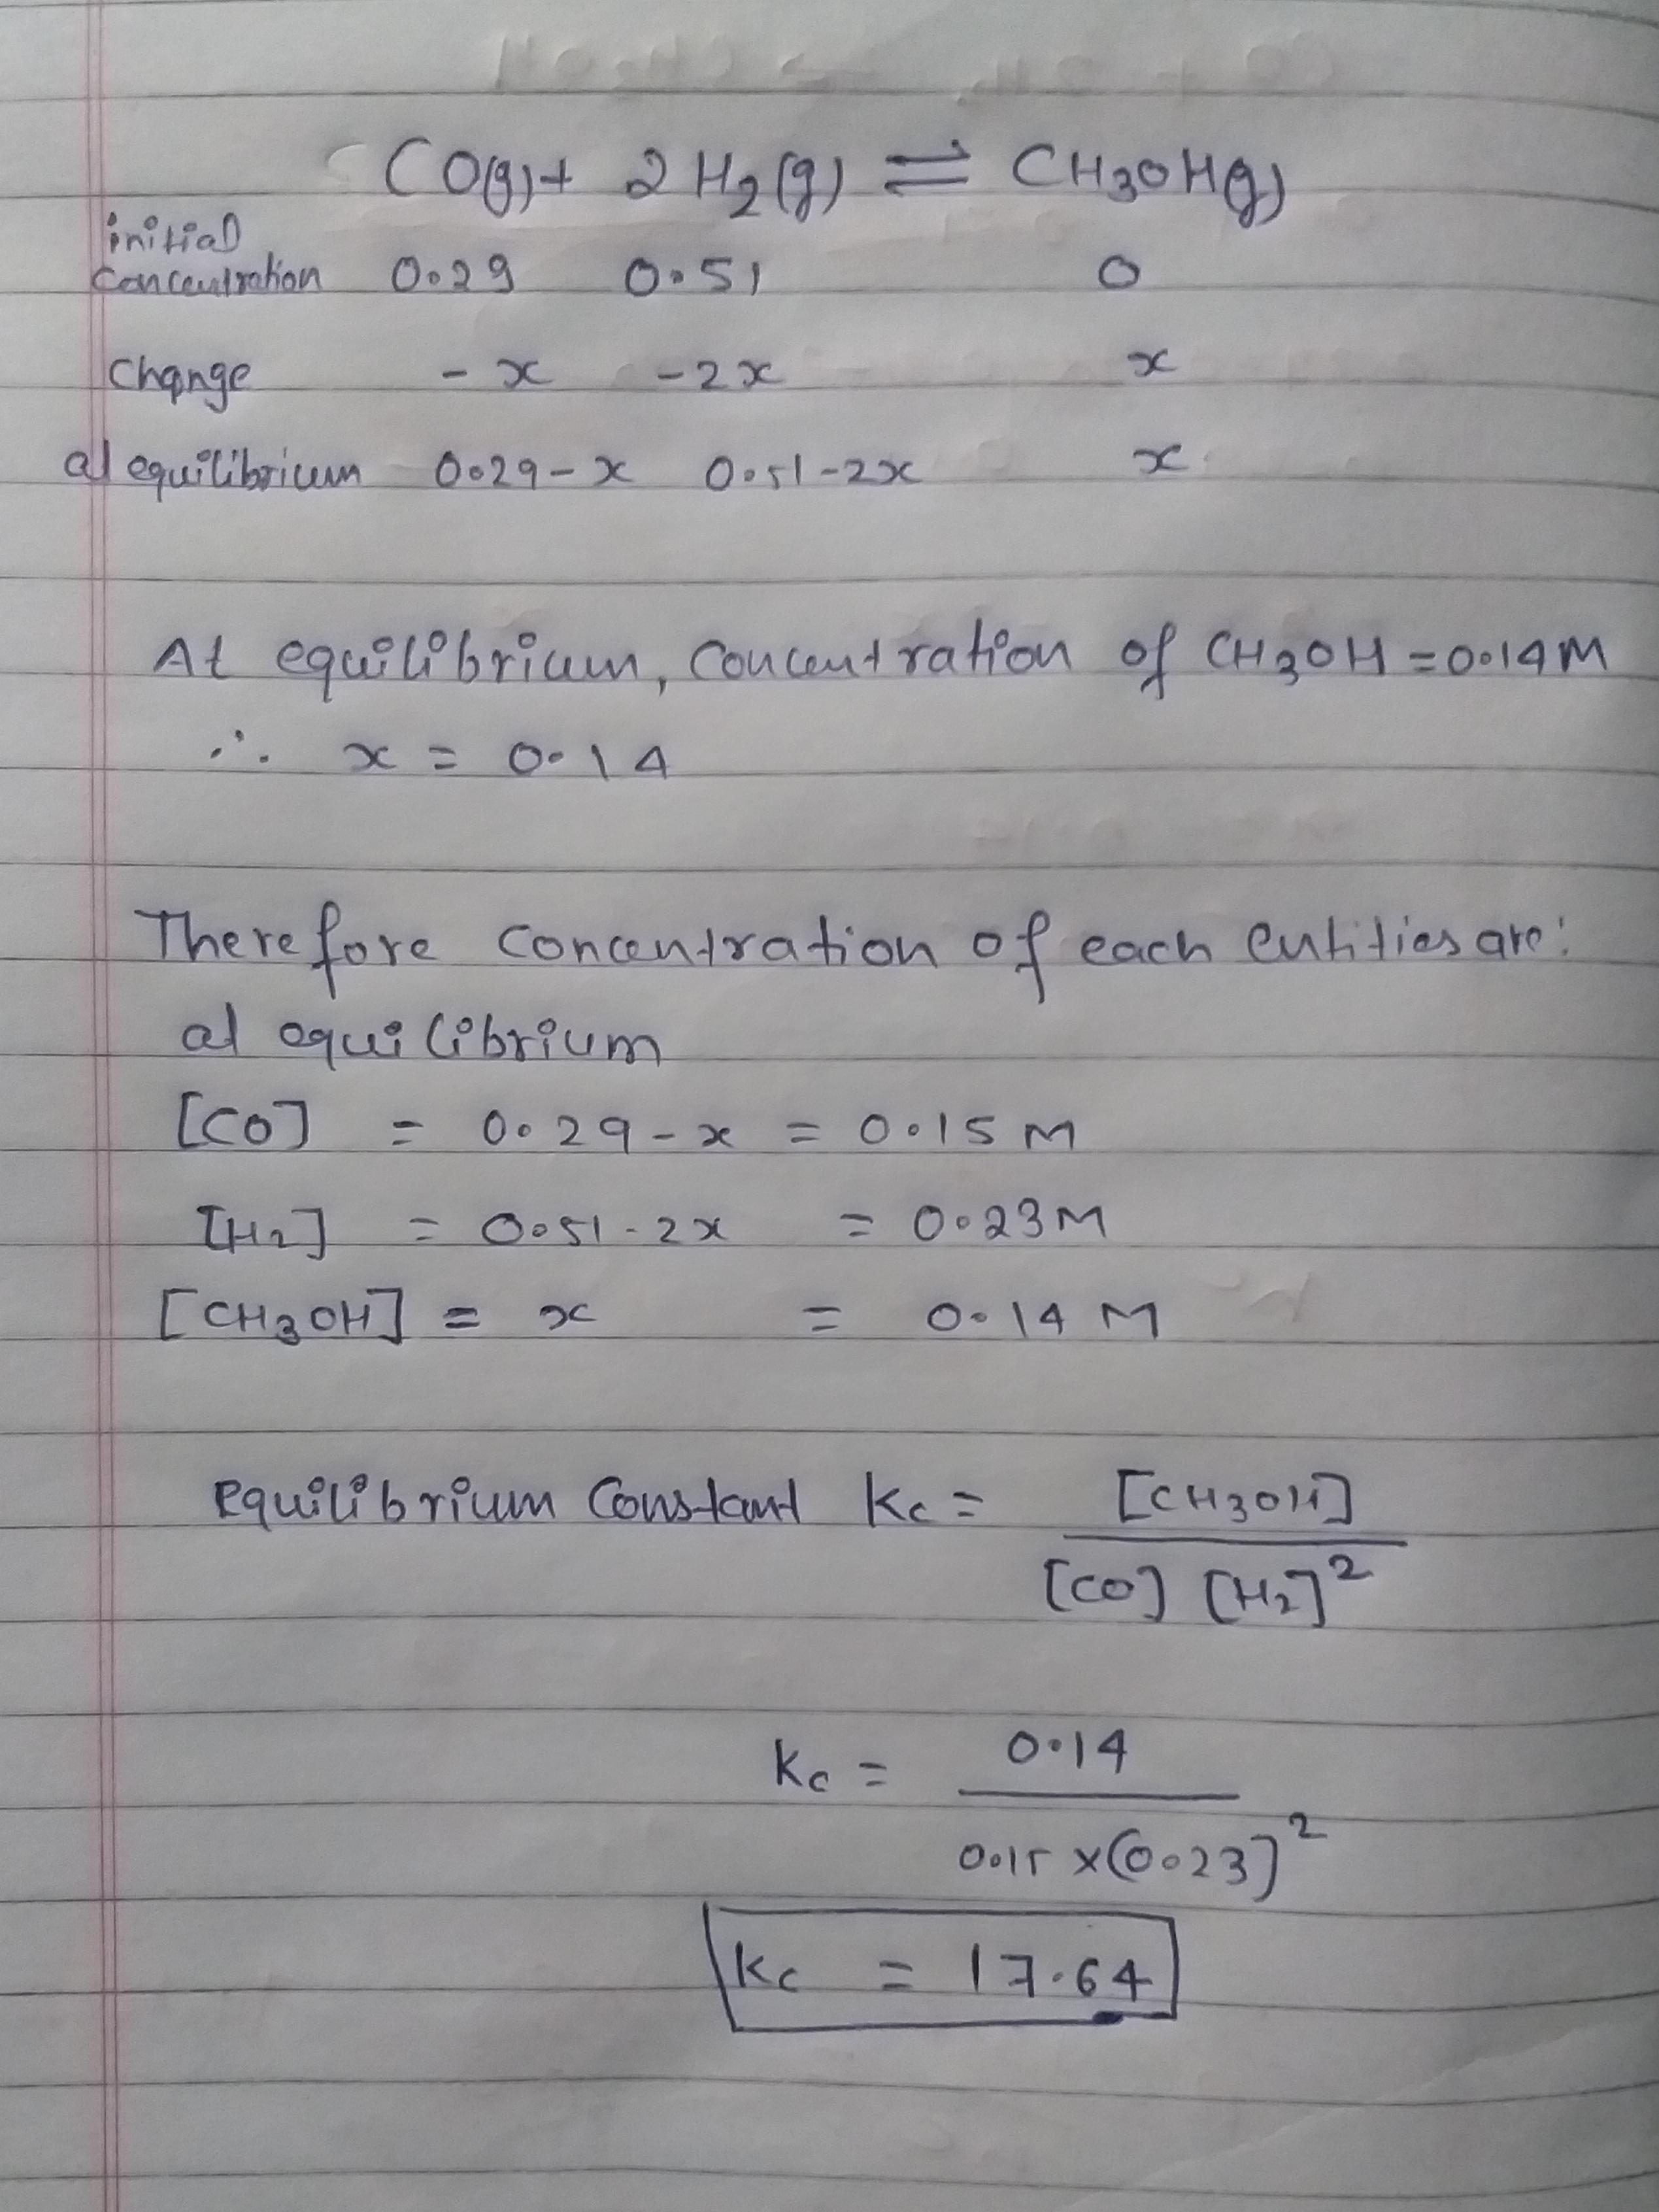 CO(g) + 2H₂(g) ⇌ CH₃OH(g)
initial
concentration 0.29 0.51 0
Change -x -2x x
at equilibrium 0.29-x 0.51-2x x
At equilibrium, Concentration of CH₃OH = 0.14M
∴ x = 0.14
Therefore concentration of each entities are:
at equilibrium
[CO] = 0.29-x = 0.15 M
[H₂] = 0.51-2x = 0.23M
[CH₃OH] = x = 0.14 M
Equilibrium Constant Kc = [CH₃OH]
[CO] [H₂]²
Kc = 0.14
0.15 x(0.23]²
Kc = 17.64